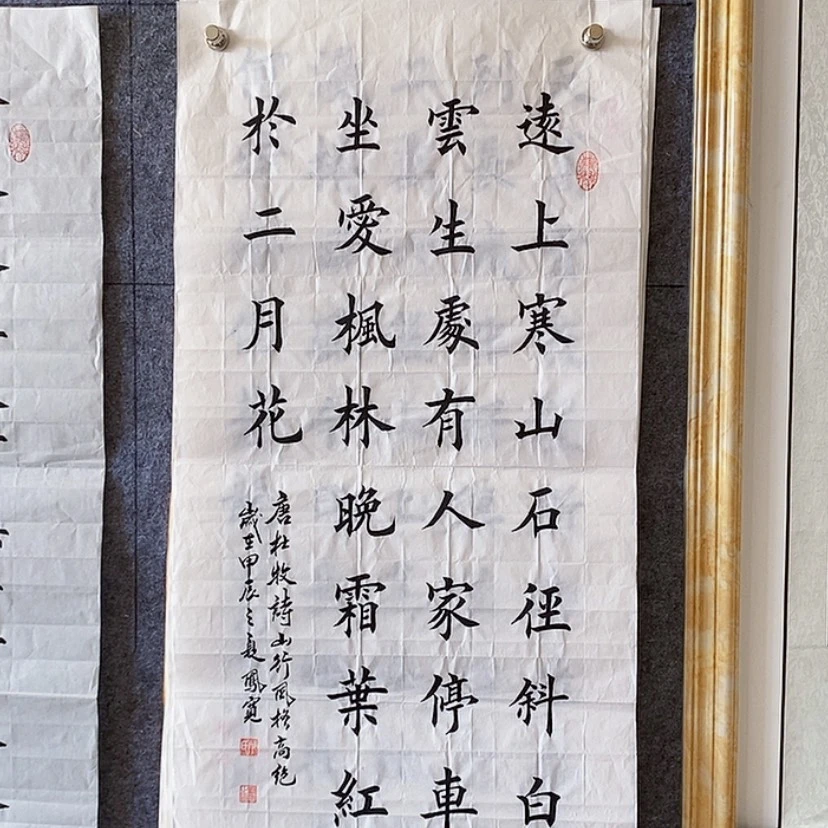 遠上寒山石徑斜白
雲生處有人家停車
坐愛楓林晚霜葉紅
於二月花
唐杜牧詩山行風格高絶
歲在甲辰之夏鳳寬